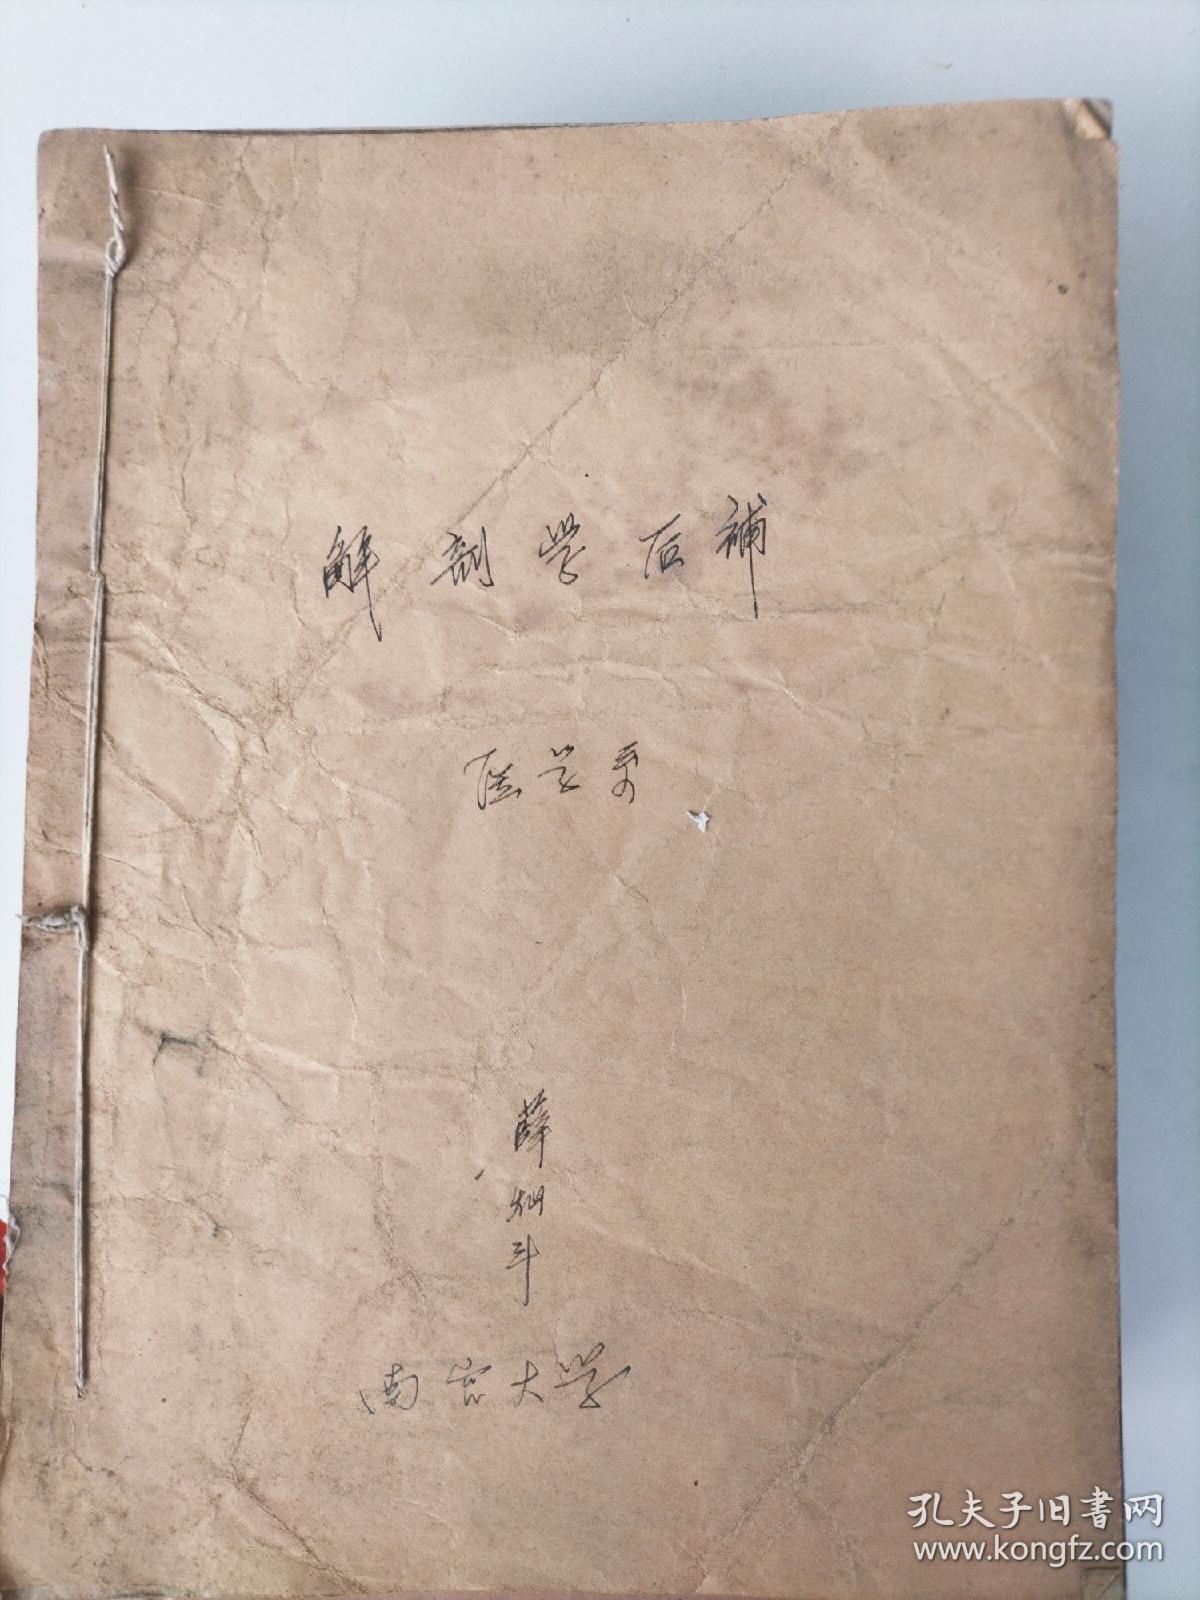 解剖学后補
医学系
薛
斗
南宫大学
孔夫子旧書网
www.kongfz.com